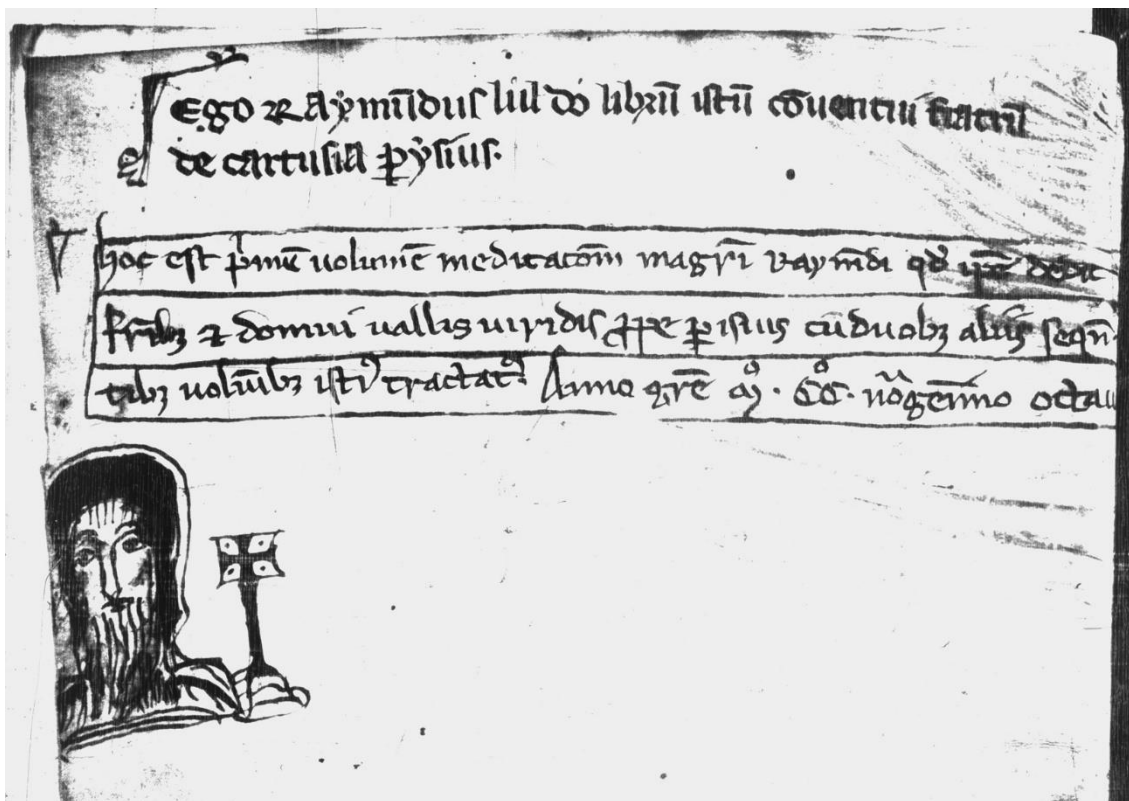 Ego Raymūdus lul do librū istū cōuentui fratrū
de cartusia ꝑysius.
hoc est pͥmū uolumē meditacōnū magrī Raymūdi qd̄ ip̄e dedit
fr̄ibꝫ ⁊ domui uallis uiridis ꝓpe ꝑisius cū duobꝫ aliis seqn̄
tibꝫ uolūībꝫ istiꝰ tractatꝰ. Anno gr̄e mͦ. ccͦ. nōgēīmo octau